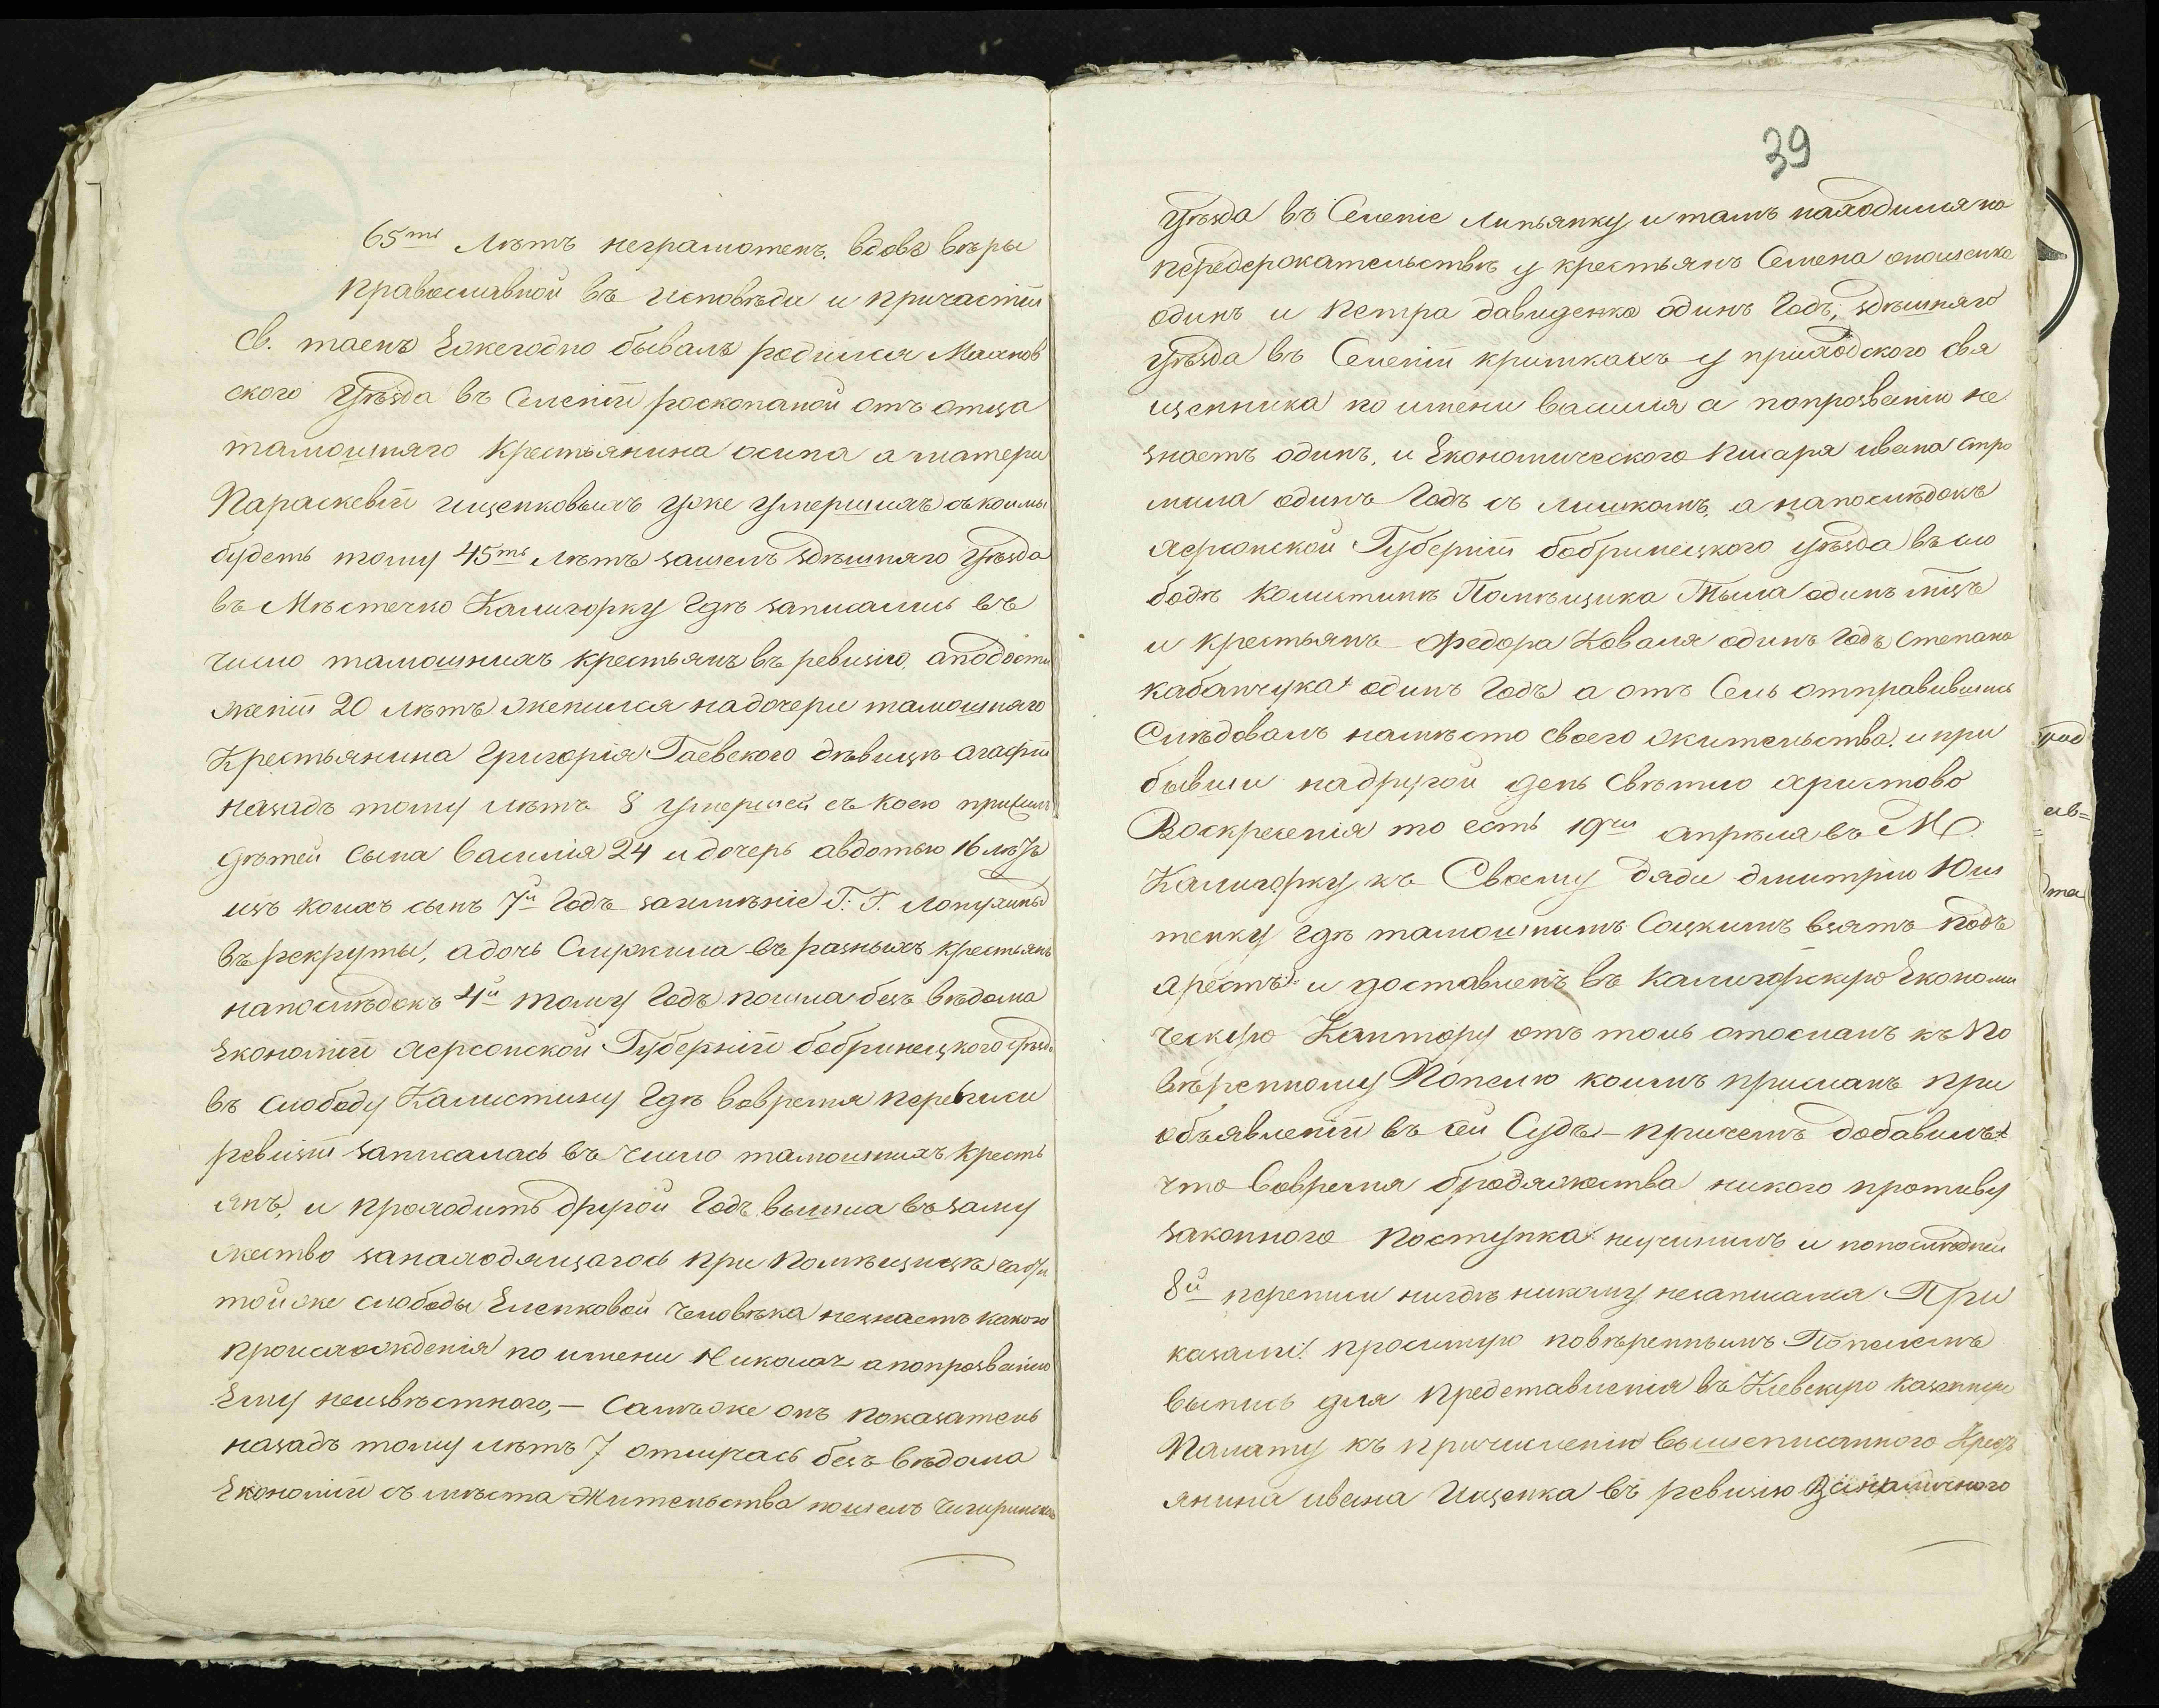 65ть Лѣтъ неграмотенъ, вдовъ вѣры
православной въ исповѣди и причастіи
Св. таенъ Ежегодно бывалъ родился Маянов
ского Уѣзда въ Селеніи роскопаной отъ отца
тамошняго Крестьянина осипа а матери
Параскевіи ищенковыхъ уже умершихъ съ коими
будетъ тому 45ть Лѣтъ зашелъ здѣшняго Уѣзда
въ Мѣстечко Калигорку гдѣ записались въ
число тамошнихъ крестьянъ въ ревизію, а подости
женіи 20 лѣтъ женился надочери тамошняго
Крестьянина Григорія Гаевского дѣвицѣ агафіи
назадъ тому лѣтъ 8 умершей съ коею прижилъ
дѣтей сына Василія 24 и дочерь авдотью 16 лѣтъ
изъ коихъ сынъ 7й годъ заимѣніе Г. Г. Лопухиныхъ
въ рекруты, а дочь Служила въ разныхъ крестьянъ
напослѣдокъ 4й тому годъ пошла безъ вѣдома
Економіи херсонской Губерніи бобринецкого уѣзда
въ слободу Калистину гдѣ вовремя переписи
ревизіи записалась въ число тамошнихъ кресть
янъ, и проходитъ другой годъ вышла въ заму
жество занаходящагось при помѣщицѣ
тойже слободы Еленковой человѣка незнаетъ какого
происхожденія по имени Николая апопрозванію
Ему неизвѣстного, — Самъ же онъ показатель
назадъ тому лѣтъ 7 отлучась безъ вѣдома
Економіи съ мѣста Жительства пошелъ чигиринского
39
Уѣзда въ Селеніе липьянку и тамъ находился по
передержательствѣ у крестьянъ Семена опошенка
одинъ и Петра давиденка одинъ годъ, здѣшняго
Уѣзда въ Селеніи кримкахъ у приходского свя
щенника по имени василія а попрозванію не
знаетъ одинъ, и Економического писаря ивана стро
мила одинъ годъ съ лишкомъ, а напослѣдокъ
херсонской Губерніи бобринецкого уѣзда въ сло
бодѣ Калистинѣ Помѣщика одинъ мсцъ
и крестьянъ Федора Коваля одинъ годъ Степана
кабанчука одинъ годъ а отъ Селъ отправившись
Слѣдовалъ намѣсто своего жительства, и при
бывши надругой день свѣтло христово
Воскресенія то есть 19го апрѣля въ М.
Калигорку къ Своему дяди дмитрію Юш
тенку гдѣ тамошнимъ Соцкимъ взятъ подъ
арестъ и доставленъ въ калигорскую Економи
ческую Кантору отъ толь отосланъ къ по
вѣренному Попелю коимъ присланъ при
объявленіи въ сей Судъ – причемъ добавилъ
что вовремя бродяжества никого противу
законного поступка неучинилъ и попослѣдней
8й переписи нигдѣ никому незаписался При
казали: просимую повѣреннымъ Попелемъ
выпись для представленія въ Кіевскую казенную
Палату къ причисленію вышеписанного Крест
янина ивана Ищенка въ ревизію